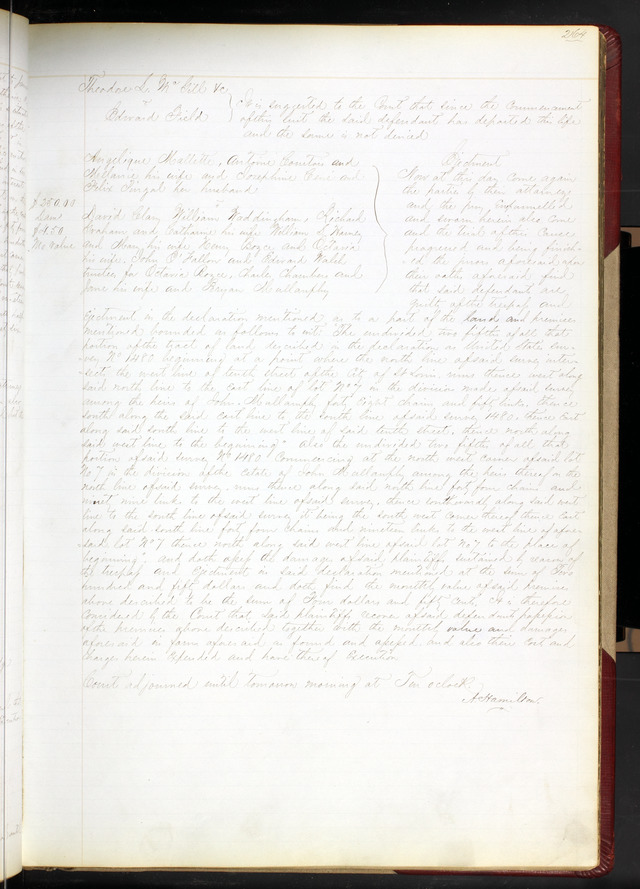 264
Theodore L. McGill &c
v
Edward Field
It is suggested to the Court that since the Commencement
of this suit the said defendant has departed this life
and the same is not denied
Angelique Mallette, Antoine and
his wife and Josephine and
Felix her husband
v
David Clary William Waddingham, Richard
Graham and Catharine his wife William S. Harney
and Mary his wife Henry Boyce and Octavia
his wife. John O'Fallon and Edward Walsh
trustee for Octavia Boyce, Charles Chambers and
Jane his wife and Bryan Mullanphy
$250.00
Dam
$4.50
Mo value
Ejectment
Now at this day come again
the parties by their attorneys
and the jury empannelled
and sworn herein also come
and the trial of this Cause
progressed and being finish-
ed the jurors aforesaid upon
their oaths aforesaid find
that said defendants are
guilty of the trespass and
Ejectment in the declaration mentioned as to a part of the land and premises
mentioned bounded as follows to wit: The undivided two fifths of all that
portion of the tract of land described in the declaration as United States sur-
vey No 1480 beginning at a point where the north line of said survey inter-
sects the west line of tenth street of the City of St Louis runs thence west along
said north line to the east line of lot No 7 in the division made of said survey
among the heirs of John Mullanphy forty eight chains and fifty links, thence
south along the said east line to the south line of said survey 1480. thence East
along said south line to the west line of said tenth street, thence north along
said west line to the beginning" Also the undivided two fifths of all that
portion of said survey No 1480 Commencing at the north west corner of said lot
No 7 in the division of the estate of John Mullanphy among the heirs thereof on the
north line of said survey, runs thence along said north line forty four chains and
nine links to the west line of said survey, thence southwardly along said west
line to the south line of said survey to being the south west corner thereof thence East
along said south line forty four chains and nineteen links to the west line of afore-
said lot No 7 thence north along said west line of said lot No 7 to the place of
beginning" and doth assess the damages of said plaintiffs sustained by reason of
the trespass and Ejectment in said declaration mentioned at the sum of Two
hundred and fifty dollars and doth find the monthly value of said premises
above described to be the sum of Four dollars and fifty Cents, It is therefore
Considered by the Court that said plaintiffs recover of said defendants possession
of the premises above described, together with the monthly value and damages
aforesaid in form aforesaid as found and assessed and also their Costs and
Charges herein Expended and have thereof Execution
Court adjourned until tomorrow morning at Ten o'clock
A. Hamilton